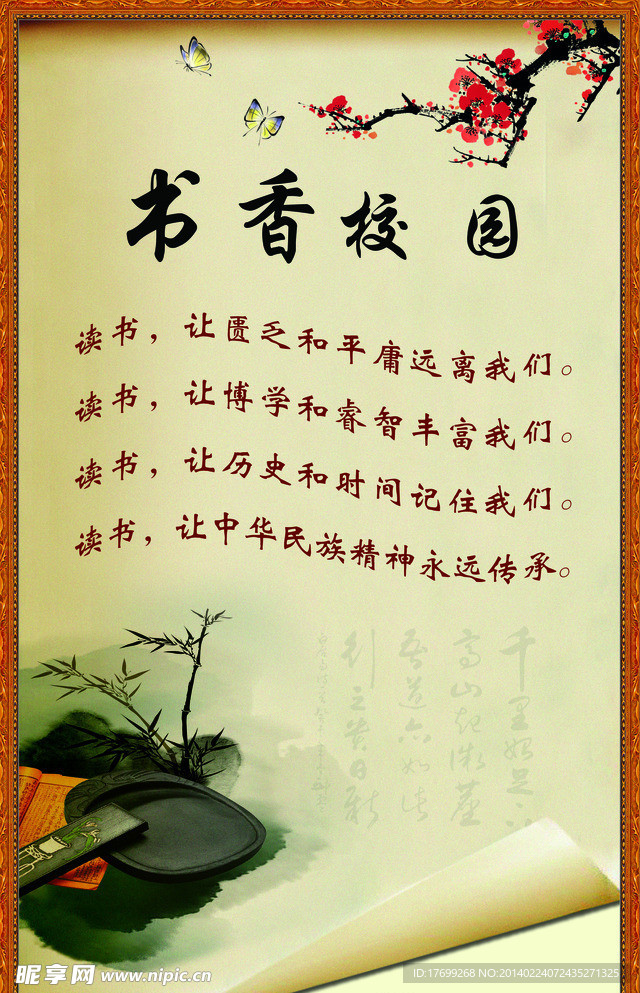 书香校园
读书，让匮乏和平庸远离我们。
读书，让博学和睿智丰富我们。
读书，让历史和时间记住我们。
读书，让中华民族精神永远传承。
千里始足下
高山起微尘
吾道亦如此
行之贵日新
昵享网 www.nipic.cn
ID:17699268 NO:20140224072435271325